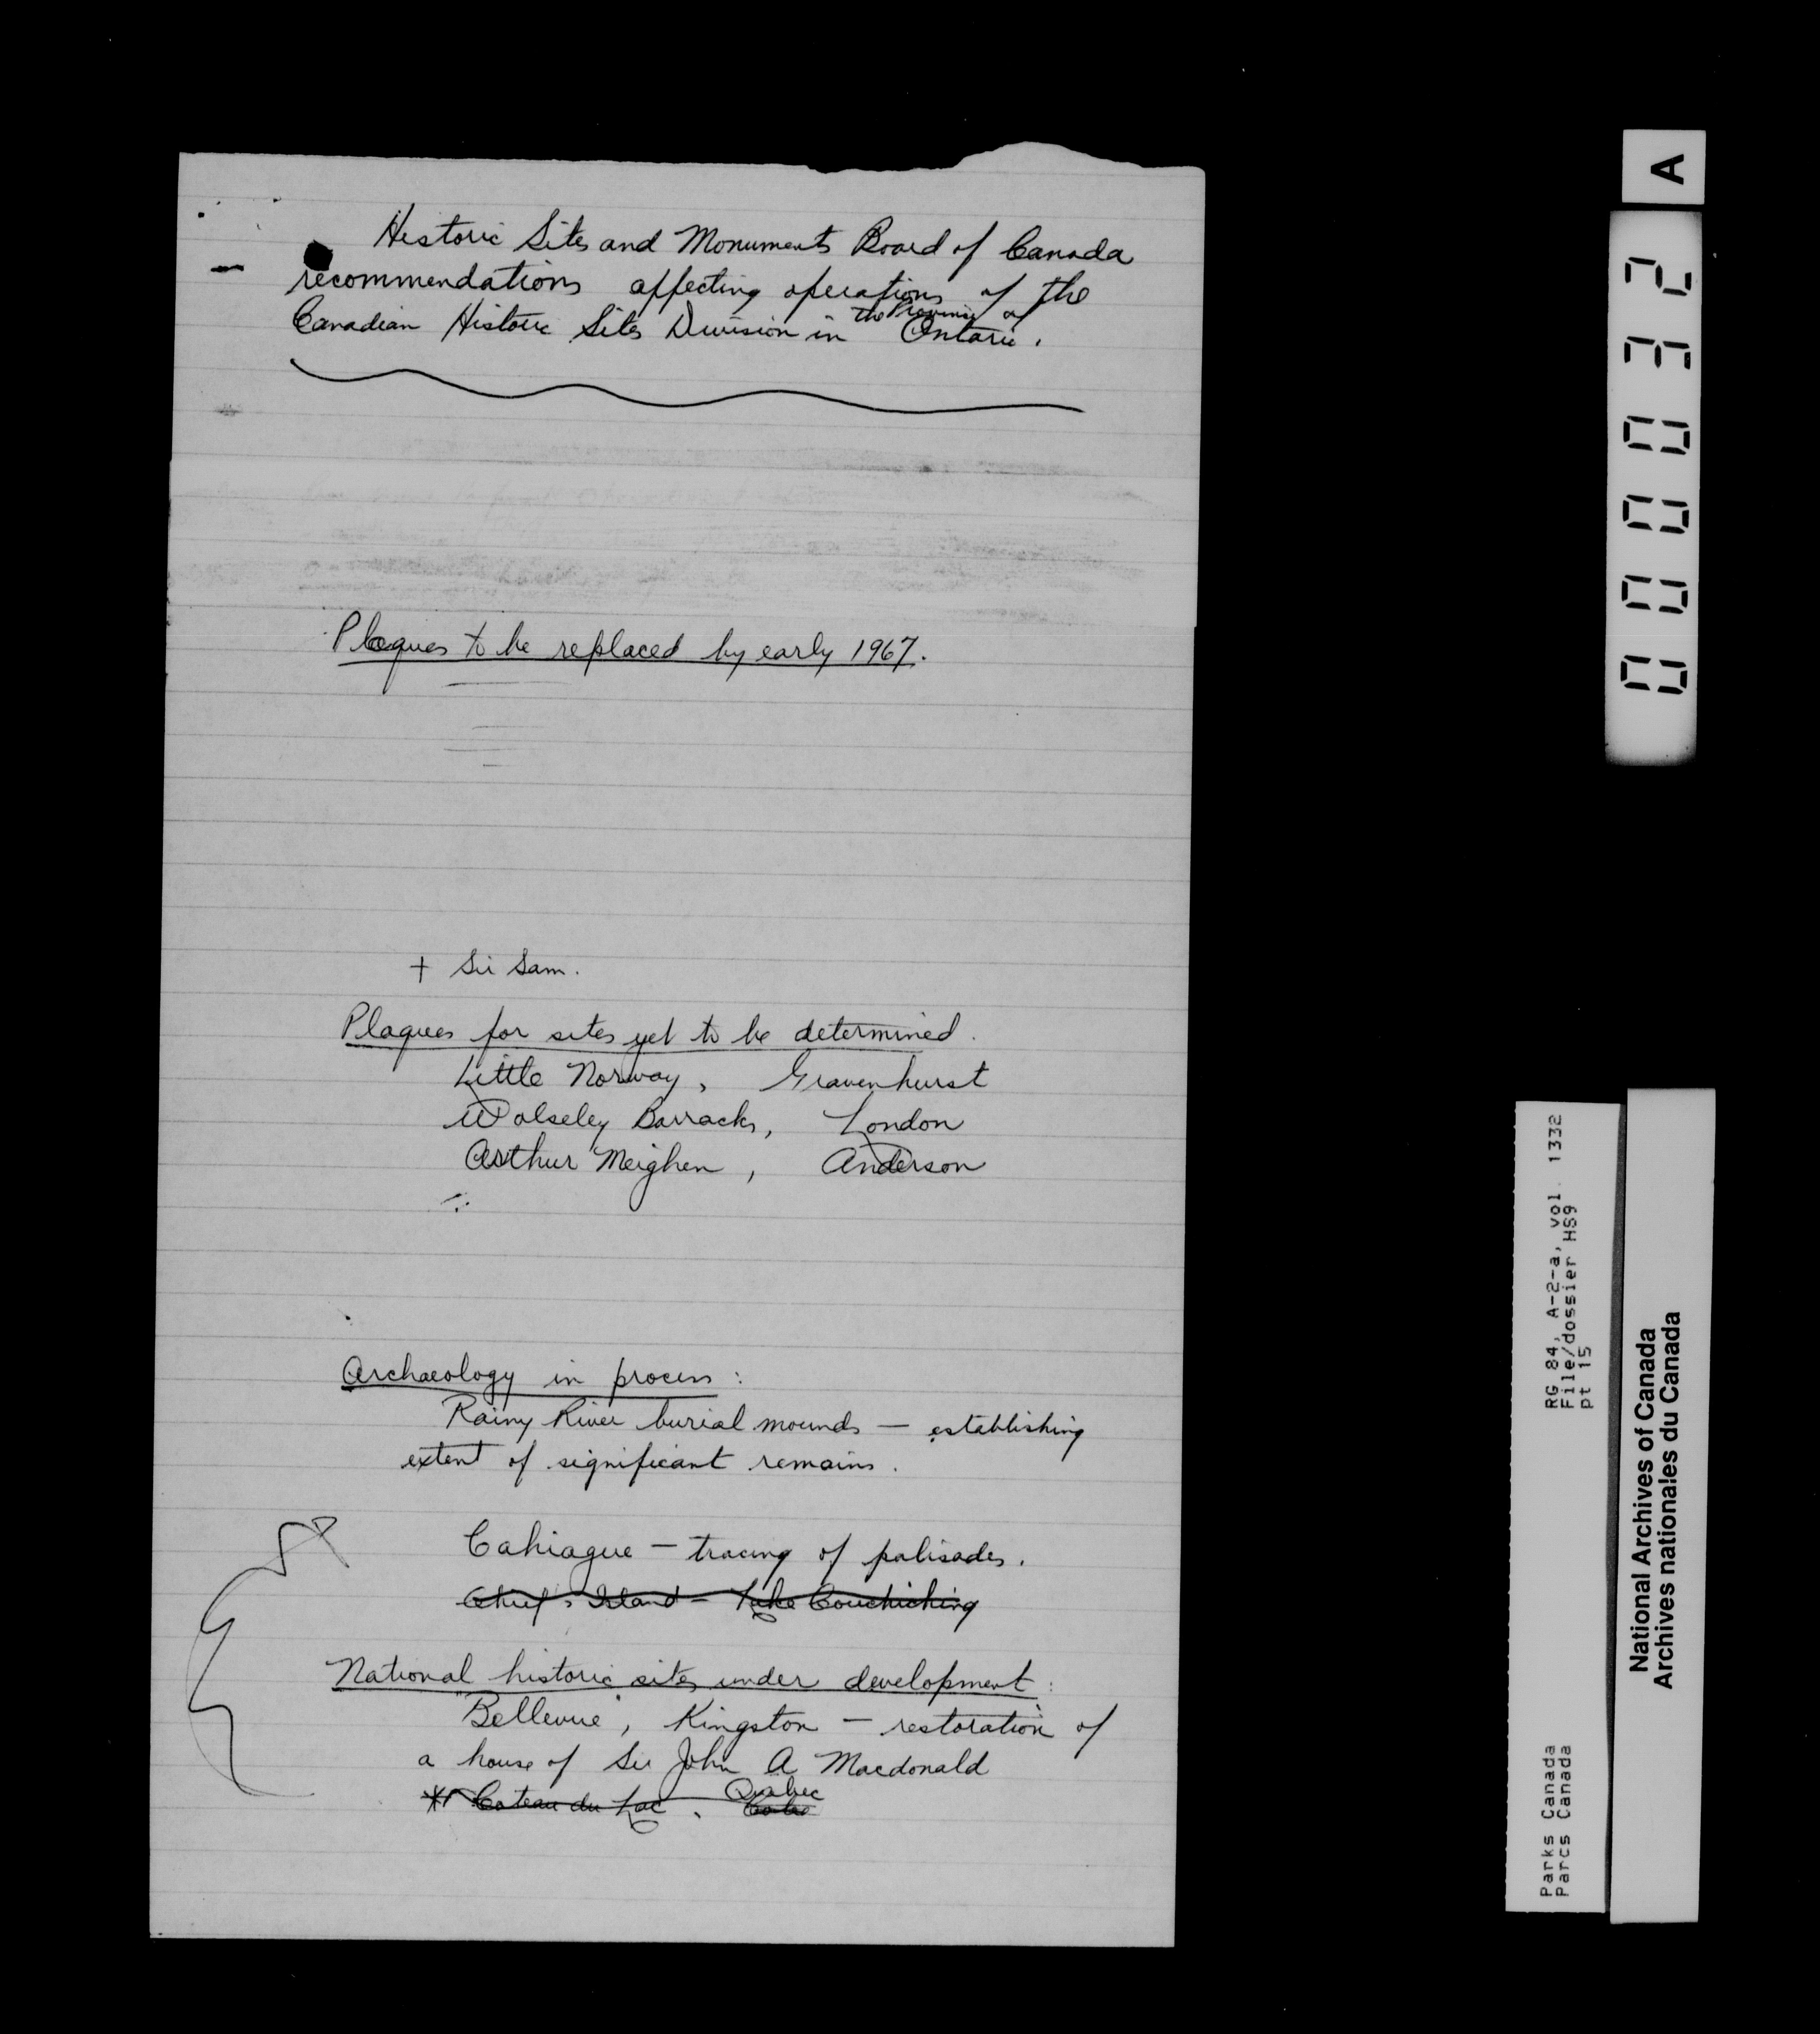 Historic Sites and Monuments Board of Canada
recommendations affecting operations of the
Canadian Historic Sites Division in the Province of Ontario.
Plaques to be replaced by early 1967.
+ Sir Sam.
Plaques for sites yet to be determined.
Little Norway, Gravenhurst
Wolseley Barracks, London
Arthur Meighen, Anderson
Archaeology in process:
Rainy River burial mounds — establishing
extent of significant remains.
Cahiague — tracing of palisades.
Chief's Island - Lake Couchiching
National historic sites under development:
"Bellevue", Kingston — restoration of
a house of Sir John A Macdonald
* Coteau du Lac, Quebec
A
000032
RG 84, A-2-a, vol. 1332
File/dossier HS9
pt 15
Parks Canada
Parcs Canada
National Archives of Canada
Archives nationales du Canada